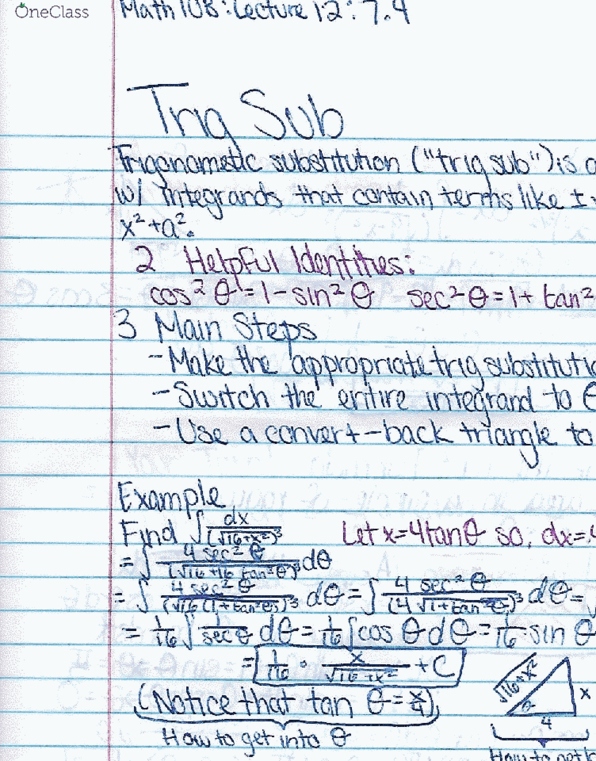 OneClass
Math 10B: Lecture 12: 7.4
Trig Sub
Trigonometic substitution ("trig sub") is a
w/ integrands that contain terms like ±
x²+a².
2 Helpful Identities:
cos²θ=1-sin²θ sec²θ=1+tan²
3 Main Steps
-Make the appropriate trig substituti
-Switch the entire integrand to θ
-Use a convert-back triangle to
Example
Find ∫ dx/(√16+x²)³ Let x=4tanθ so, dx=4
=∫ 4 sec²θ/(√16+16 tan²θ)³ dθ
=∫ 4 sec²θ/(√16(1+tan²θ))³ dθ=∫ 4 sec²θ/(4√1+tan²θ)³ dθ=
=1/16 ∫ 1/secθ dθ=1/16 ∫cosθdθ=1/16 sinθ
=1/16 · x/√16+x² +C
(Notice that tan θ=x/4)
√16+x² θ x
4
How to get into θ
How to get b